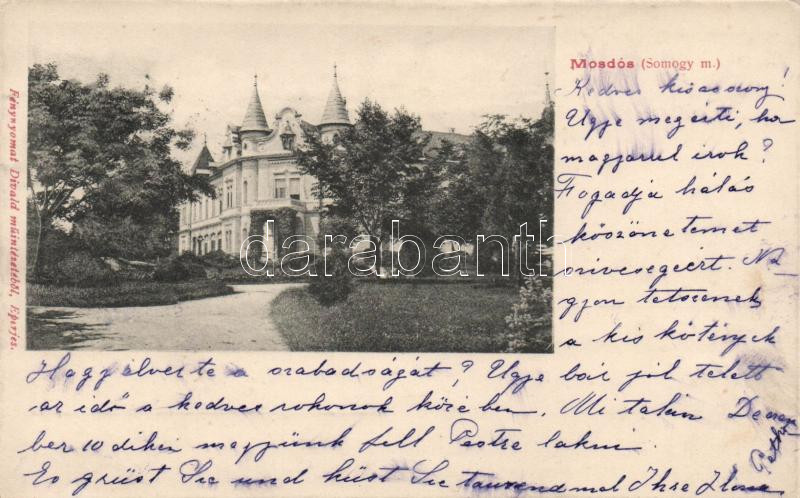 Mosdós (Somogy m.)
Kedves kisasszony!
Ugye megérti, ha
magyarul irok?
Fogadja hálás
köszönetemet
szivességeért. Na-
gyon tetszenek
a kis kötények
Hogy élvezte a szabadságát? Ugye bár jól telett
az idő a kedves rokonok közében. Mi talán Decem
ber 10 dikén megyünk fell Pestre lakni
Es grüst Sie und küst Sie tausendmal Ihre Ilona
Fénynyomat Divald műintézetéből, Eperjes.
darabanth.com